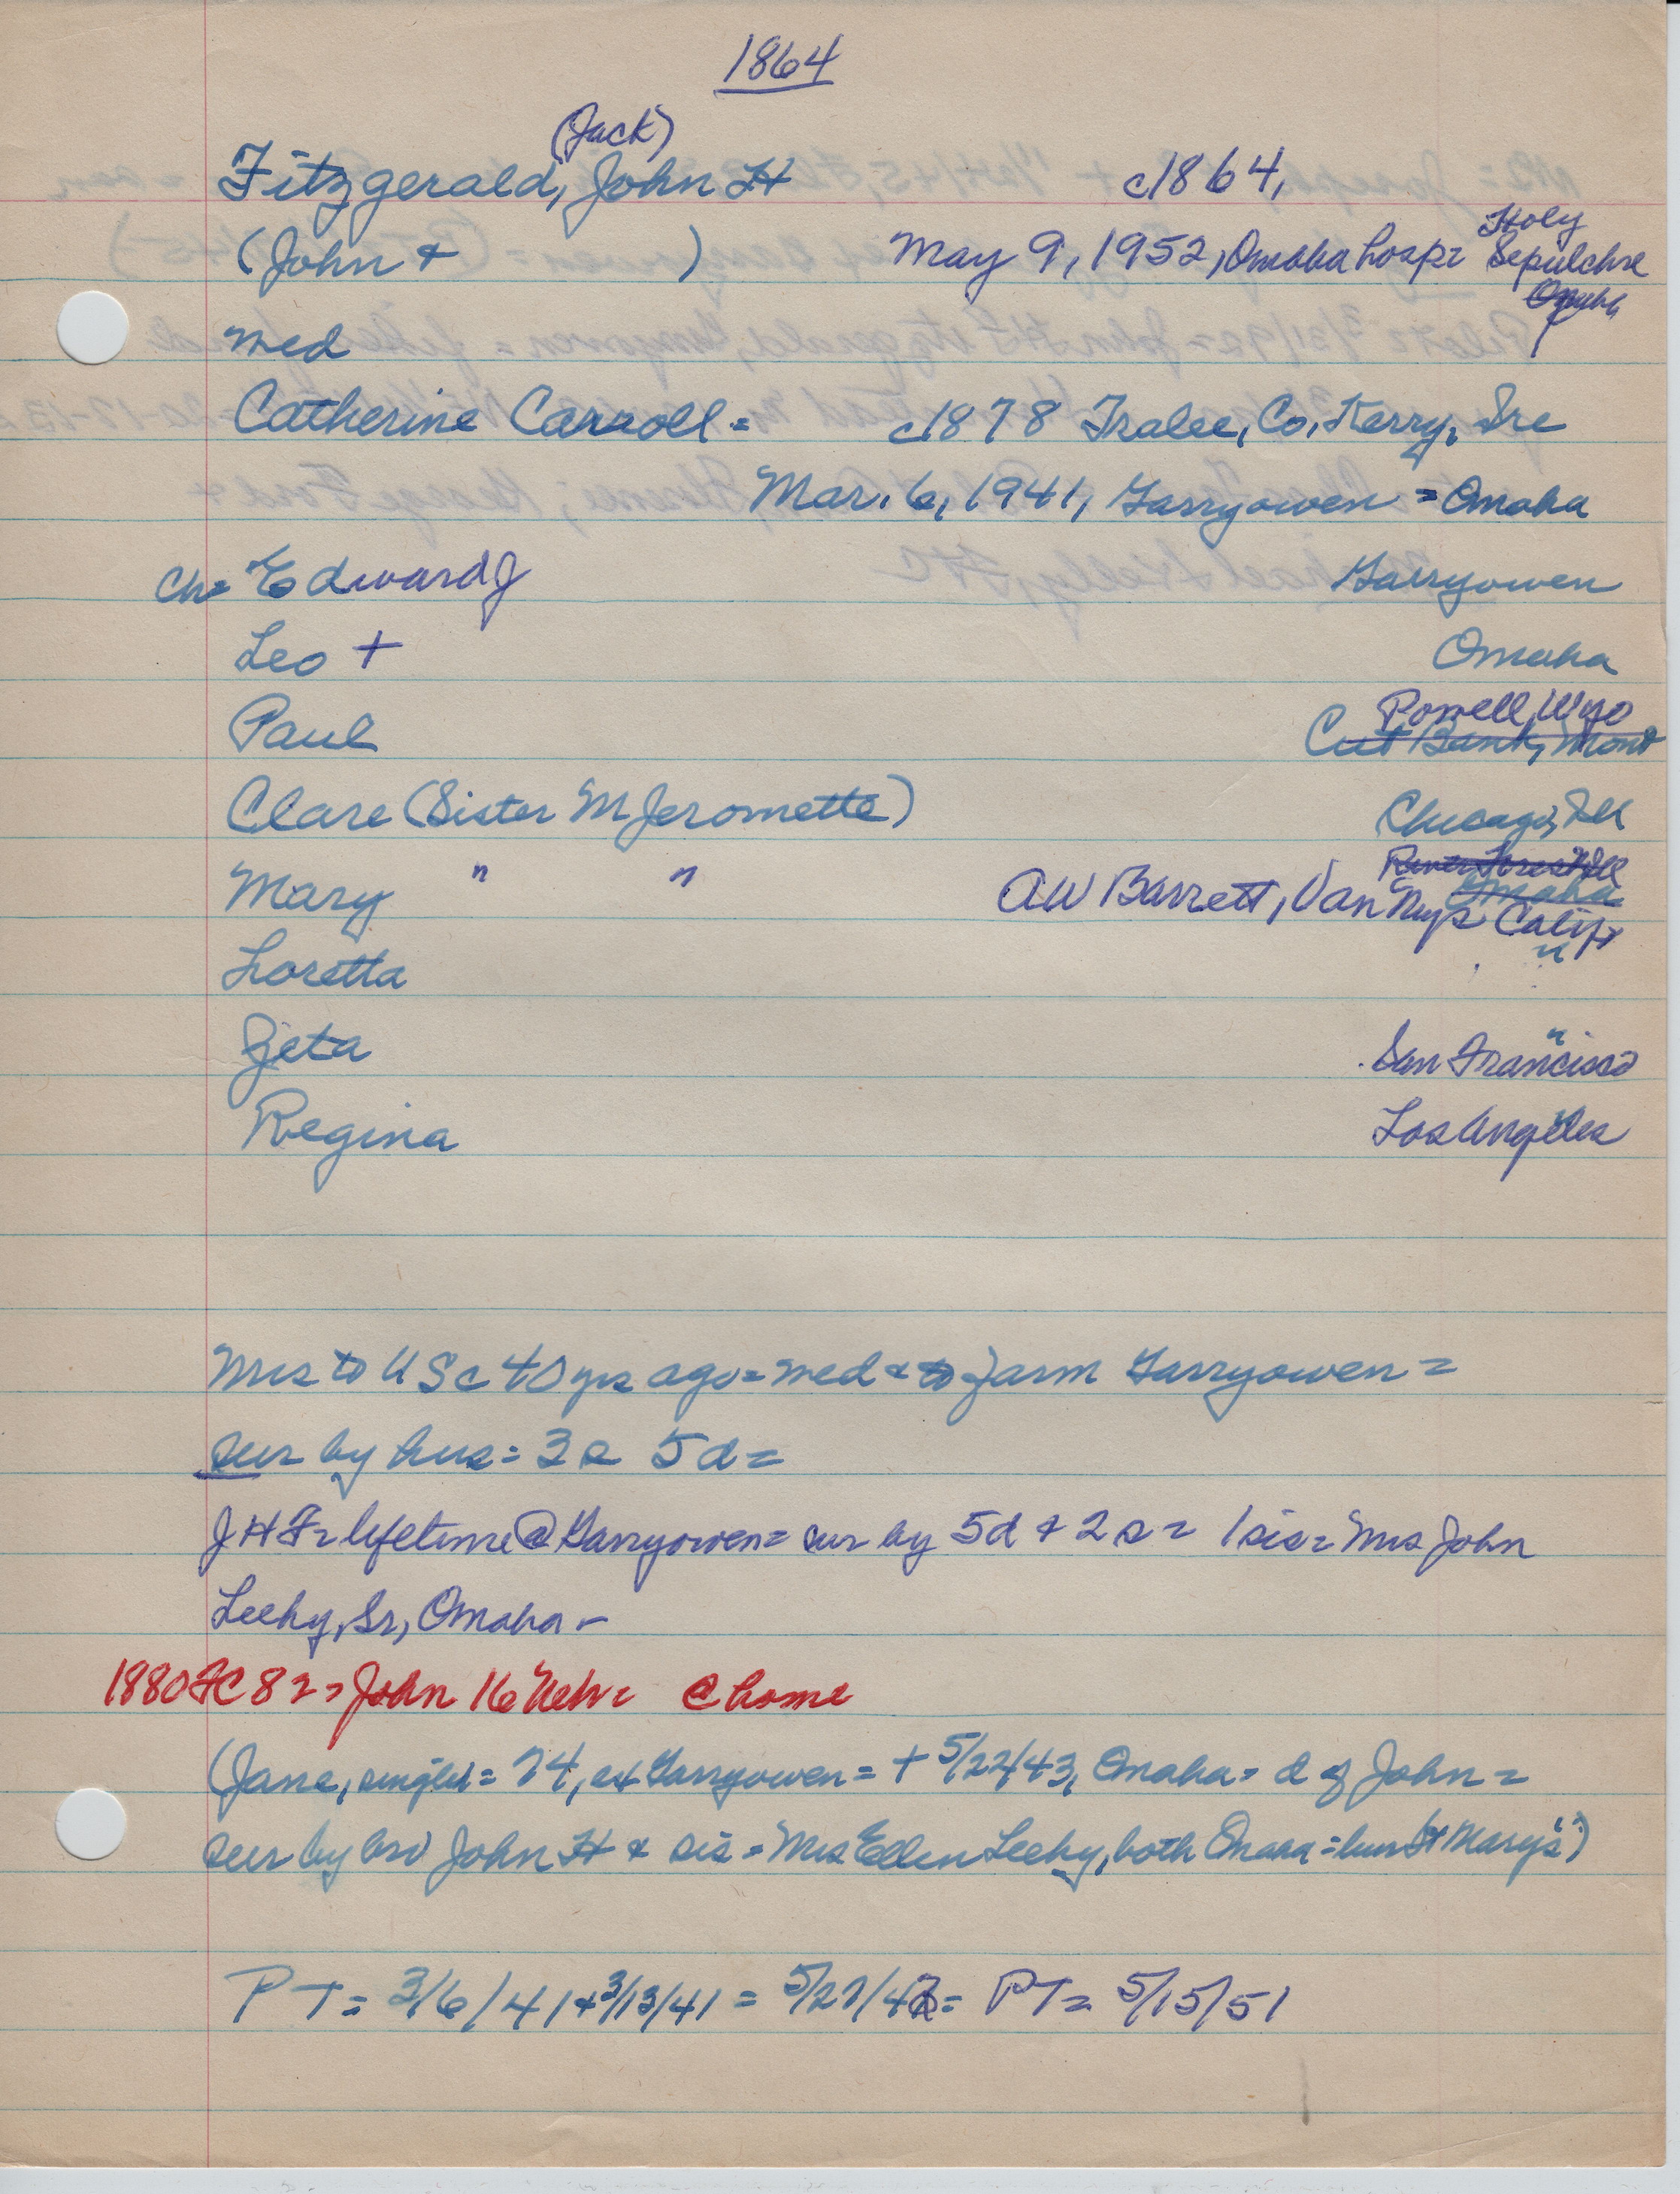 1864
(Jack)
Fitzgerald, John H c1864,
(John + ) May 9, 1952, Omaha hosp = Holy Sepulchre
Omaha
med
Catherine Carroll = c1878 Tralee, Co, Kerry, Ire
Mar. 6, 1941, Garryowen = Omaha
Ch = Edward J Garryowen
Leo + Omaha
Powell, Wyo
Paul Cut Bank, Mont
Clare (Sister M Jeromette) Chicago, Ill
River Forest Ill
Omaha
Mary " " AW Barrett, Van Nuys Calif
Loretta "
"
Zeta San Francisco
Regina Los Angeles
Mrs to US c 40 yrs ago = med & to farm Garryowen =
sur by hus = 3 s 5 d =
JHF = lifetime @ Garryowen = sur by 5d + 2 s = 1 sis = Mrs John
Leehy, Sr, Omaha -
1880 FC 82 = John 16 Neb = @ home
(Jane, single = 74, ex Garryowen = + 5/22/43, Omaha = d of John =
sur by bro John H & sis = Mrs Ellen Leehy, both Omaha = bur St Mary's)
PT = 3/6/41 + 3/13/41 = = PT = 5/15/51